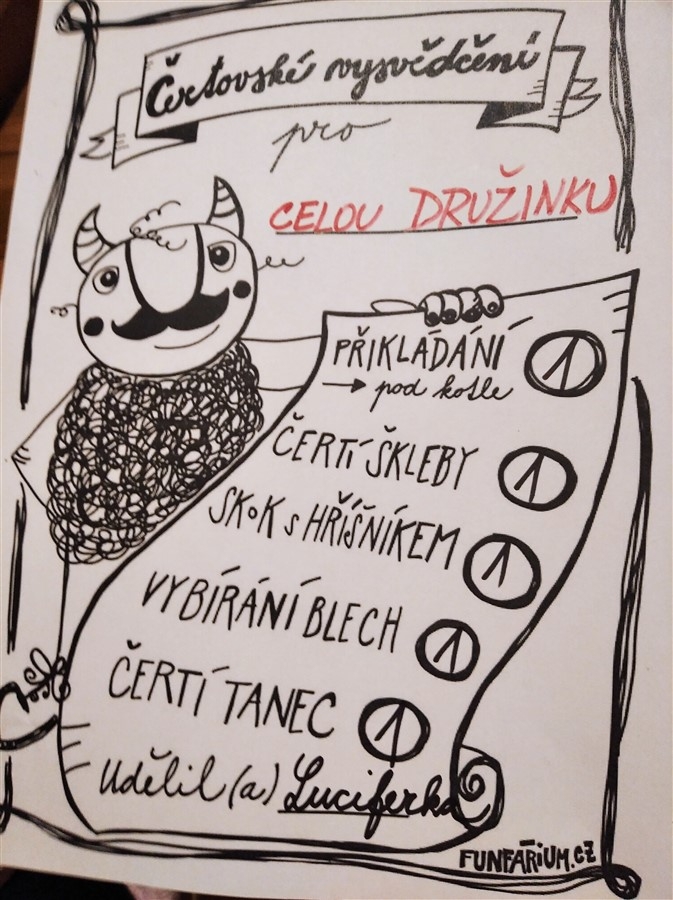 Čertovské vysvědčení
pro
CELOU DRUŽINKU
PŘIKLÁDÁNÍ 1
→ pod kotle
ČERTÍ ŠKLEBY 1
SKOK s HŘÍŠNÍKEM 1
VYBÍRÁNÍ BLECH 1
ČERTÍ TANEC 1
Udělil (a) Luciferka
FUNFÁRIUM.CZ